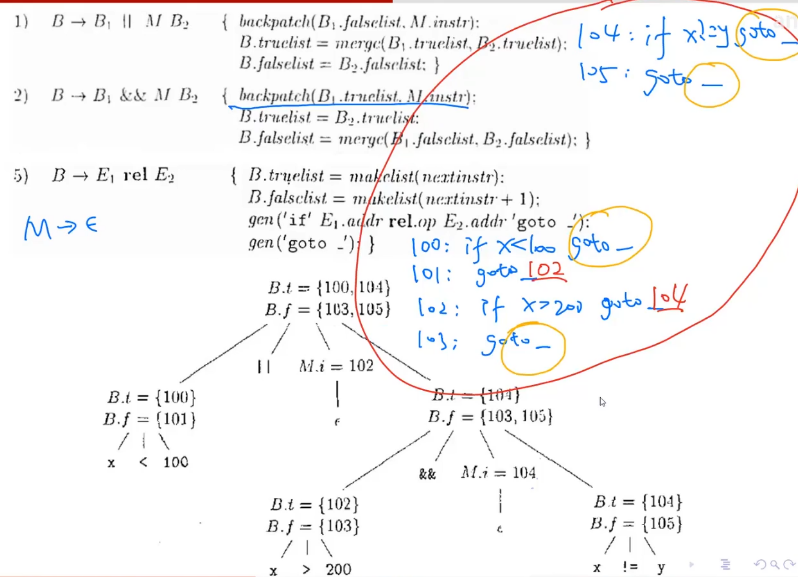 1) B → B₁ || M B₂ { backpatch(B₁.falselist, M.instr);
B.truelist = merge(B₁.truelist, B₂.truelist);
B.falselist = B₂.falselist; }
2) B → B₁ && M B₂ { backpatch(B₁.truelist, M.instr);
B.truelist = B₂.truelist;
B.falselist = merge(B₁.falselist, B₂.falselist); }
5) B → E₁ rel E₂ { B.truelist = makelist(nextinstr);
B.falselist = makelist(nextinstr + 1);
gen('if' E₁.addr rel.op E₂.addr 'goto _');
gen('goto _'); }
M → ε
104: if x!=y goto _
105: goto _
100: if x<100 goto _
101: goto 102
102: if x>200 goto 104
103: goto _
B.t = {100, 104}
B.f = {103, 105}
|| M.i = 102
ε
B.t = {100}
B.f = {101}
x < 100
B.t = {104}
B.f = {103, 105}
&& M.i = 104
ε
B.t = {102}
B.f = {103}
x > 200
B.t = {104}
B.f = {105}
x != y